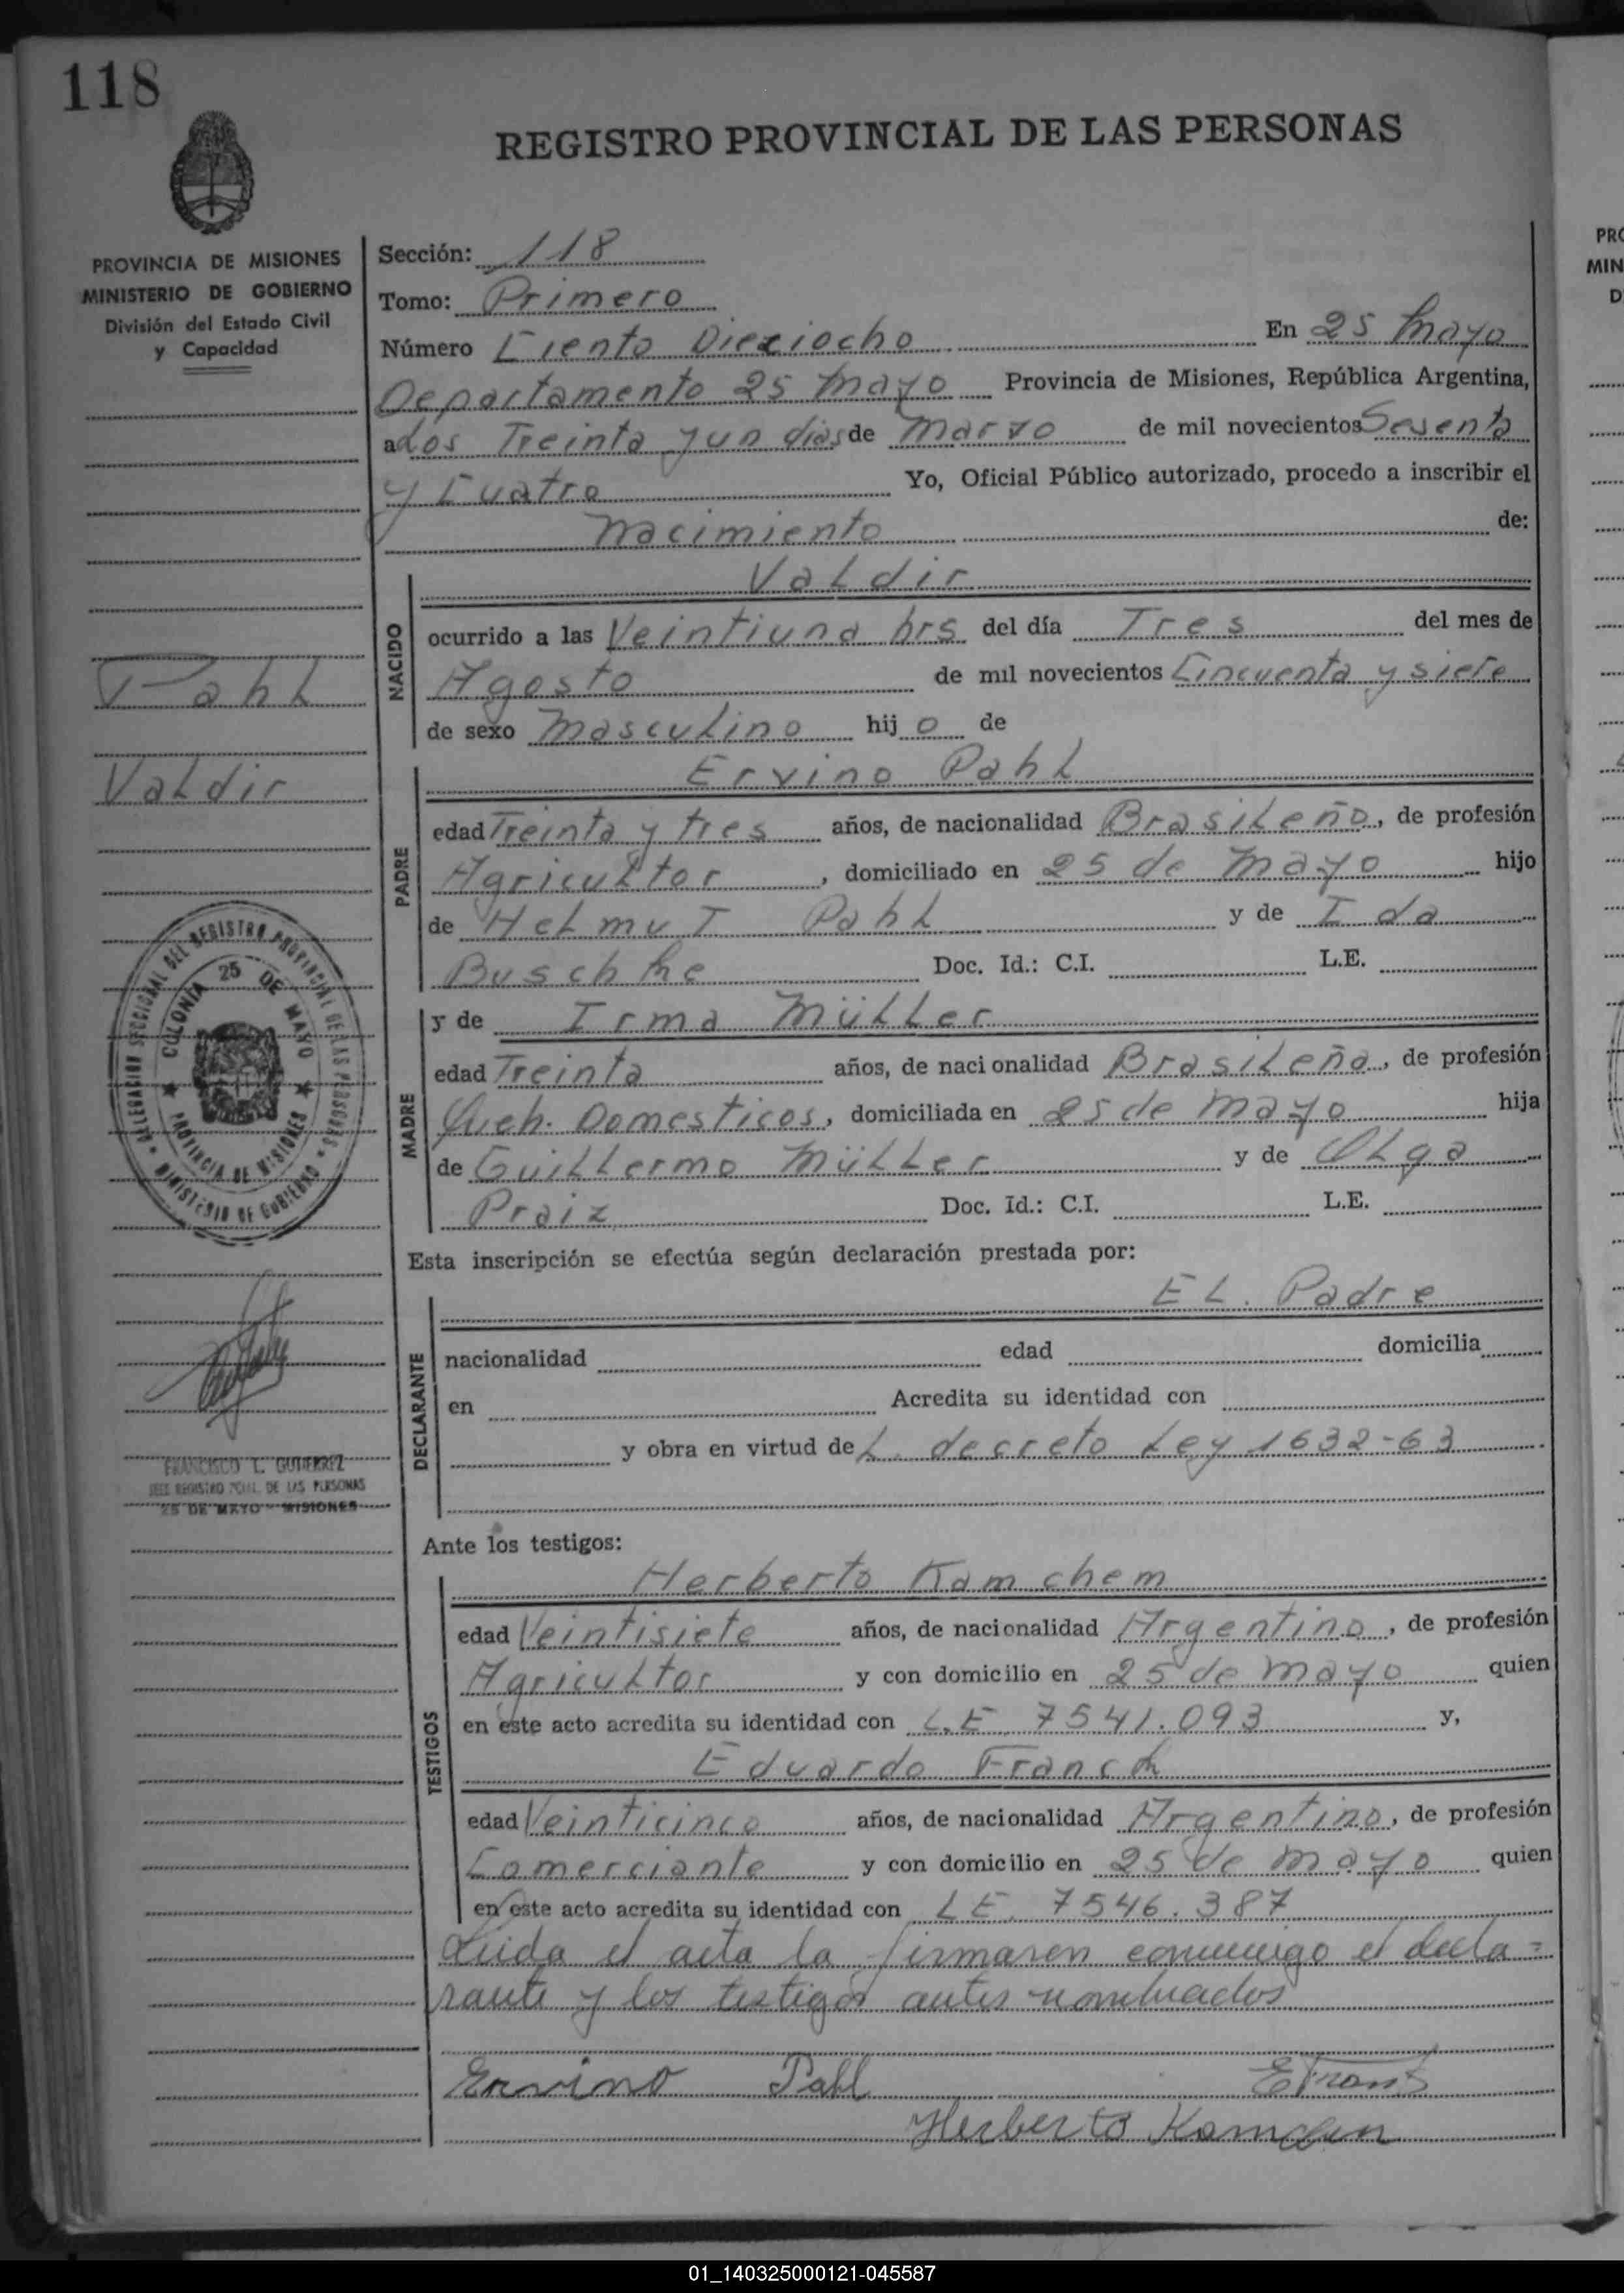 118
REGISTRO PROVINCIAL DE LAS PERSONAS
PROVINCIA DE MISIONES
MINISTERIO DE GOBIERNO
División del Estado Civil
y Capacidad
Pahl
Valdir
DELEGACION SECCIONAL DEL REGISTRO PROVINCIAL DE LAS PERSONAS
MINISTERIO DE GOBIERNO
COLONIA 25 DE MAYO
PROVINCIA DE MISIONES
FRANCISCO L. GUTIERREZ
JEFE REGISTRO PCIAL. DE LAS PERSONAS
25 DE MAYO - MISIONES
Sección: 118
Tomo: Primero
Número Ciento Dieciocho En 25 Mayo
Departamento 25 Mayo Provincia de Misiones, República Argentina,
a Los Treinta y un dias de Marzo de mil novecientos Sesenta
y Cuatro Yo, Oficial Público autorizado, procedo a inscribir el
Nacimiento de:
NACIDO
Valdir
ocurrido a las Veintiuna hrs del día Tres del mes de
Agosto de mil novecientos Cincuenta y siete
de sexo Masculino hijo de
PADRE
Ervino Pahl
edad Treinta y tres años, de nacionalidad Brasileño, de profesión
Agricultor, domiciliado en 25 de Mayo hijo
de Helmut Pahl y de Ida
Buschke Doc. Id.: C.I. L.E.
MADRE
y de Irma Müller
edad Treinta años, de nacionalidad Brasileña, de profesión
Queh. Domesticos, domiciliada en 25 de Mayo hija
de Guillermo Müller y de Olga
Praiz Doc. Id.: C.I. L.E.
Esta inscripción se efectúa según declaración prestada por:
DECLARANTE
EL. Padre
nacionalidad edad domicilia
en Acredita su identidad con
y obra en virtud de L. decreto Ley 1632-63
Ante los testigos:
TESTIGOS
Herberto Kamchem
edad Veintisiete años, de nacionalidad Argentino, de profesión
Agricultor y con domicilio en 25 de Mayo quien
en este acto acredita su identidad con L.E. 7541.093 y,
Eduardo Franck
edad Veinticinco años, de nacionalidad Argentino, de profesión
Comerciante y con domicilio en 25 de Mayo quien
en este acto acredita su identidad con LE. 7546.387
Leida el acta la firmaron conmigo el decla=
rante y los testigos antes nombrados
Ervino Pahl
Herberto
PRO
MIN
D
01_140325000121-045587